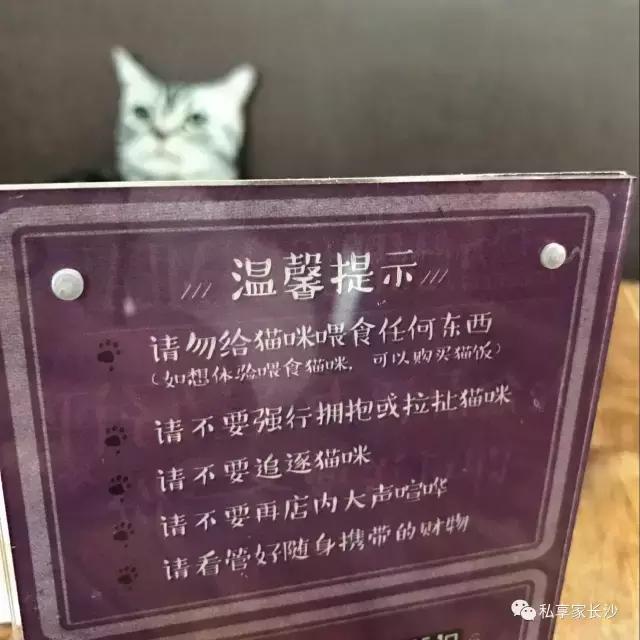 温馨提示
请勿给猫咪喂食任何东西
(如想体验喂食猫咪，可以购买猫饭)
请不要强行拥抱或拉扯猫咪
请不要追逐猫咪
请不要再店内大声喧哗
请看管好随身携带的财物
私享家长沙